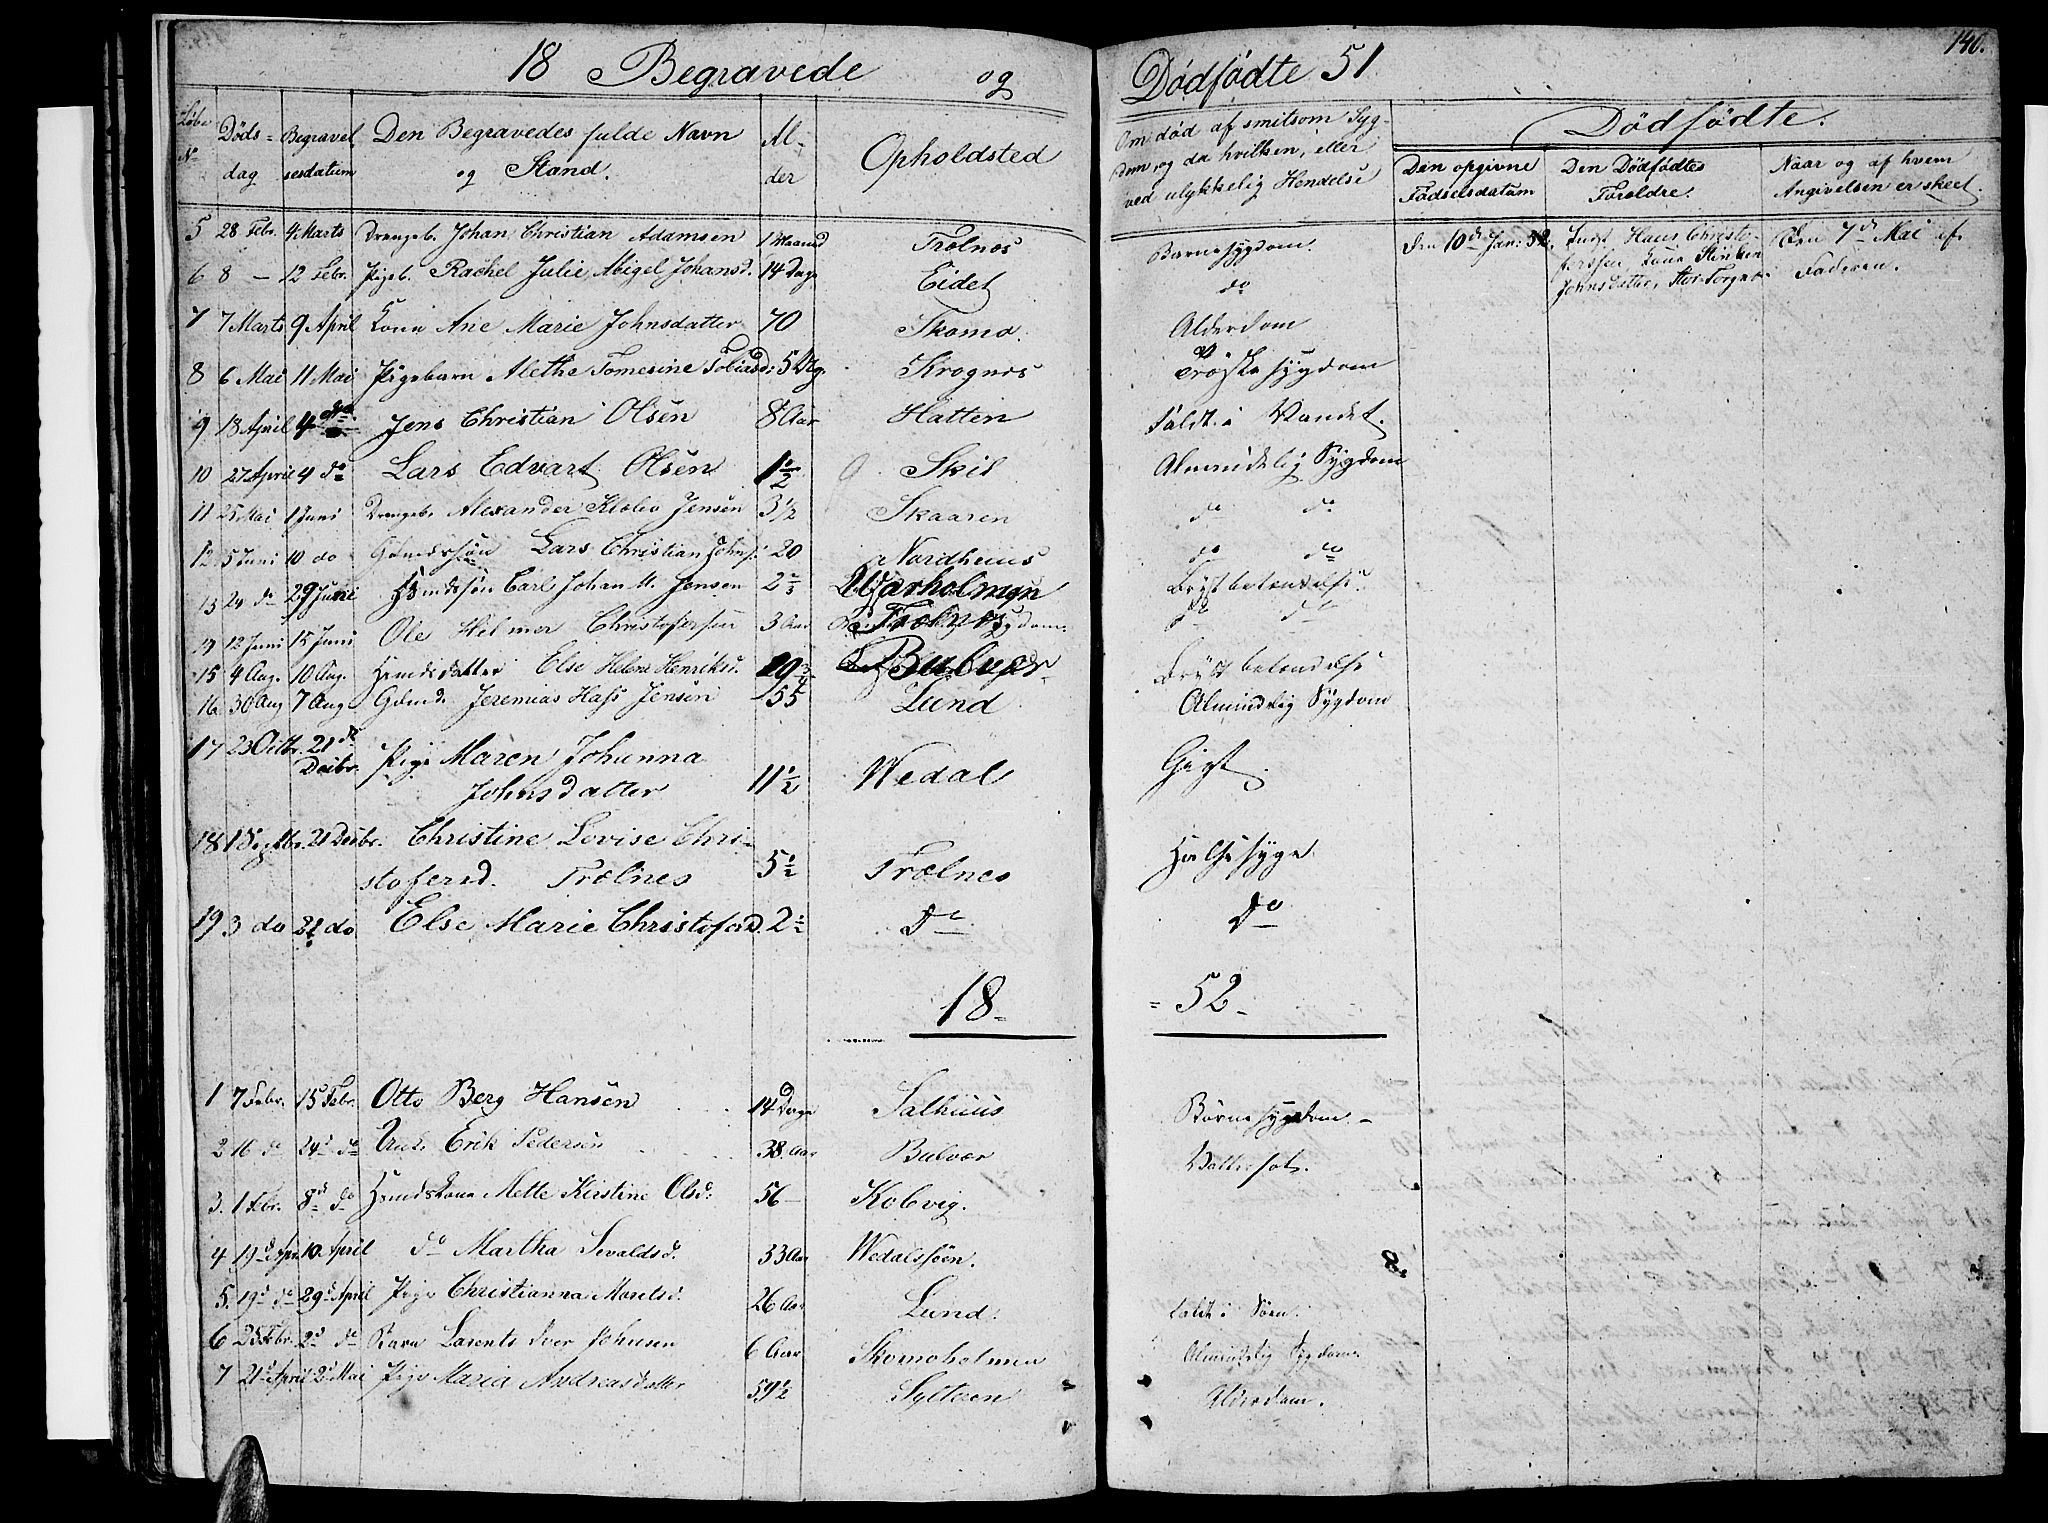 140.
18 Begravede og Dødfødte 51
Løbe No
Døds-dag
Begravelsesdatum
Den Begravedes fulde Navn og Stand.
Al-der
Opholdsted
Om død af smitsom Syg-
dom og da hvilken, eller
ved ulykkelig Hendelse
Dødfødte.
Den opgivne Fødselsdatum
Den Dødfødtes Forældre.
Naar og af hvem Angivelsen er skeet.
5 28 Febr. 4 Marts Drengeb. Johan Christian Adamsen 1 Maaned Trælnæs Barnesygdom.
den 10de Jan: 52.
Indst Hans Christo-
fersen Kone
Johnsdatter, Stor Torgnæs
Den 7de Mai af
Faderen.
6 8 – 12 Febr. Pigeb. Rachel Julie Abigel Johansd. 14 Dage Eidet do
7 7 Marts 9 April Kone Ane Marie Johnsdatter 70 Skomo. Alderdom
8 6 Mai 11 Mai Pigebarn Alethe Tomesine Tobiasd: 5 Dg. Krognes Trøskesygdom
9 18 April 4 do Jens Christian Olsen 8 Aar Hatten Faldt i Vandet.
10 27 April 4 do Lars Edvart Olsen 1½ Skil Almindelig Sygdom
11 25 Mai 1 Juni Drengeb. Alexander Klæbo Jensen 3½ Skaaren do do
12 5 Juni 10 do Gdmdssøn Lars Christian Johns: 20 Nordhuus do do
13 24 do 29 Junie Hmdssøn Carl Johan M. Jensen 2 Qvarholmen Brystbetændelse
19 12 Juni 15 Juni Ole Hilmer Christofersen 3 Aar Trælnes do do
15 4 Aug. 10 Aug. Hmdsdatter Else Helene Henriksd. 29¾ Bulvær Brystbetændelse
16 30 Aug 7 Aug Gdmd. Jeremias Hass Jensen 55 Lund Almindelig Sygdom
17 23 Octbr. 21de Desbr. Pige Maren Johanna
Johnsdatter 11½ Wedal Gigt.
18 1 Septbr. 21 Desbr. Christine Lovise Chri-
stofersd. Trælnes 5½ Trælnes Halssyge
19 3 do 21 do Else Marie Christofersd. 2½ do do
18 = 52 -
1 7 Febr. 15 Febr. Otto Berg Hansen 14 Dage Salhuus Børnesygdom. –
2 16 do 24d do Erik Pedersen 38. Aar Bulvær Vattersot.
3. 1 Febr. 8d do Hmdskone Mette Kirstine Olsd: 56 – Kolvig.
4 19d Apr. 10 April do Martha Sivaldsd. 33 Aar Wedalssøen. 8.
5. 19d do 29d April Pige Christianna Morelsd. 26 Aar Lund. Faldt i Søen.
6 25 Febr. 2d do Barn Larents Johnsen 6 Aar Skomoholmen Almindelig Sygdom
7 21d April 2d Mai Pige Maria Andreasdatter 59½ Sylteren Alderdom.